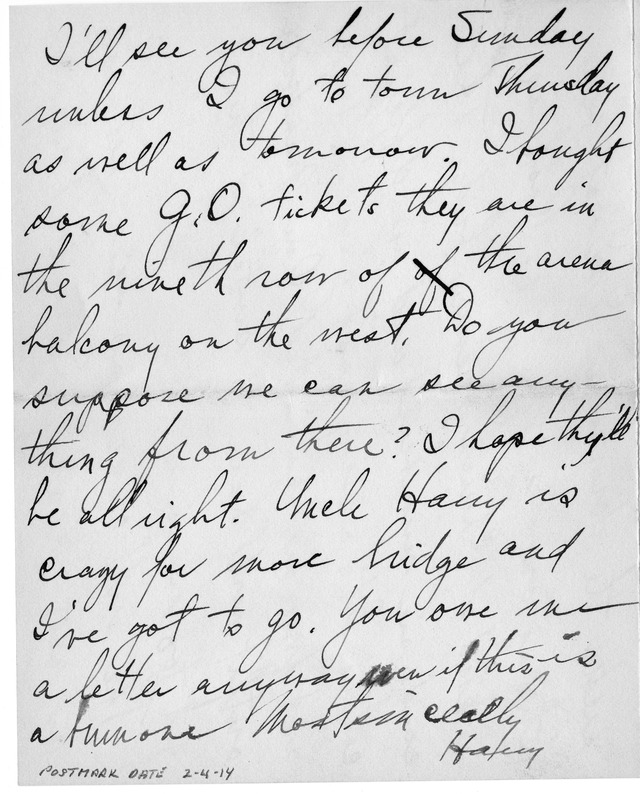 I'll see you before Sunday
unless I go to town Thursday
as well as tomorrow. I bought
some G.O. tickets they are in
the nineth row of of the arena
balcony on the west. Do you
suppose we can see any-
thing from there? I hope they'll
be all right. Uncle Harry is
crazy for more bridge and
I've got to go. You owe me
a letter anyway even if this is
a bum one Most sincerely
Harry
POSTMARK DATE 2-4-14